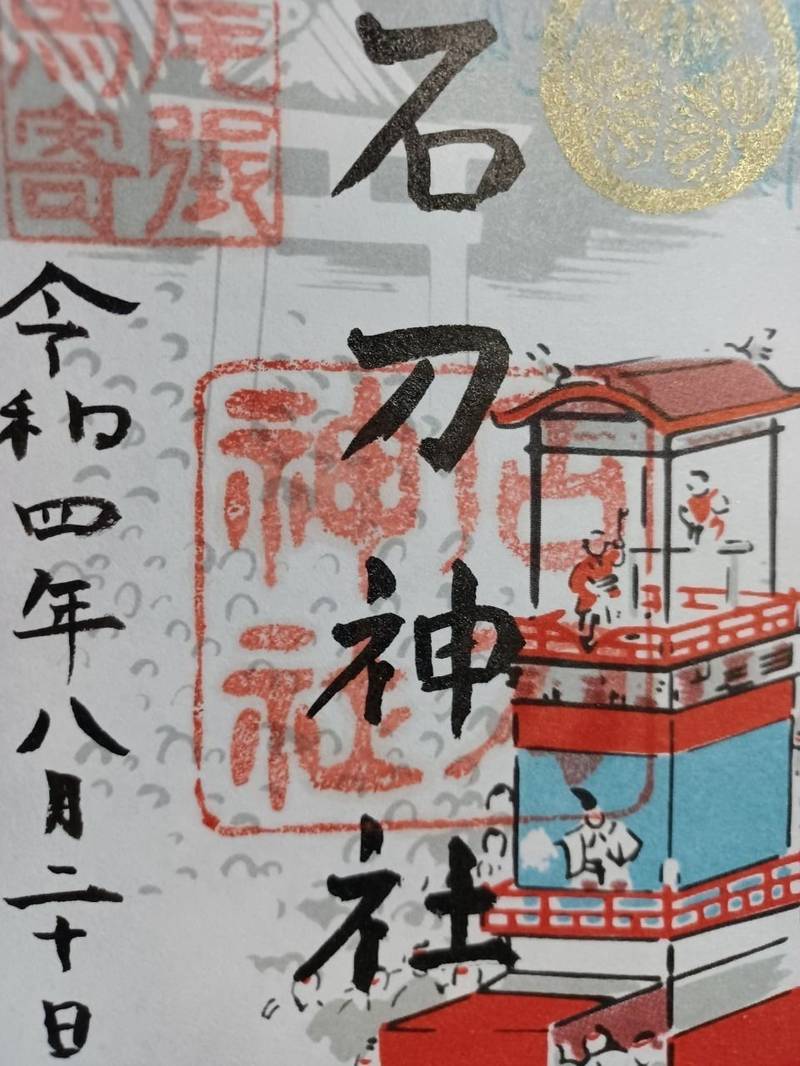 石刀神社
石刀
神社
尾張
馬寄
令和四年八月二十日